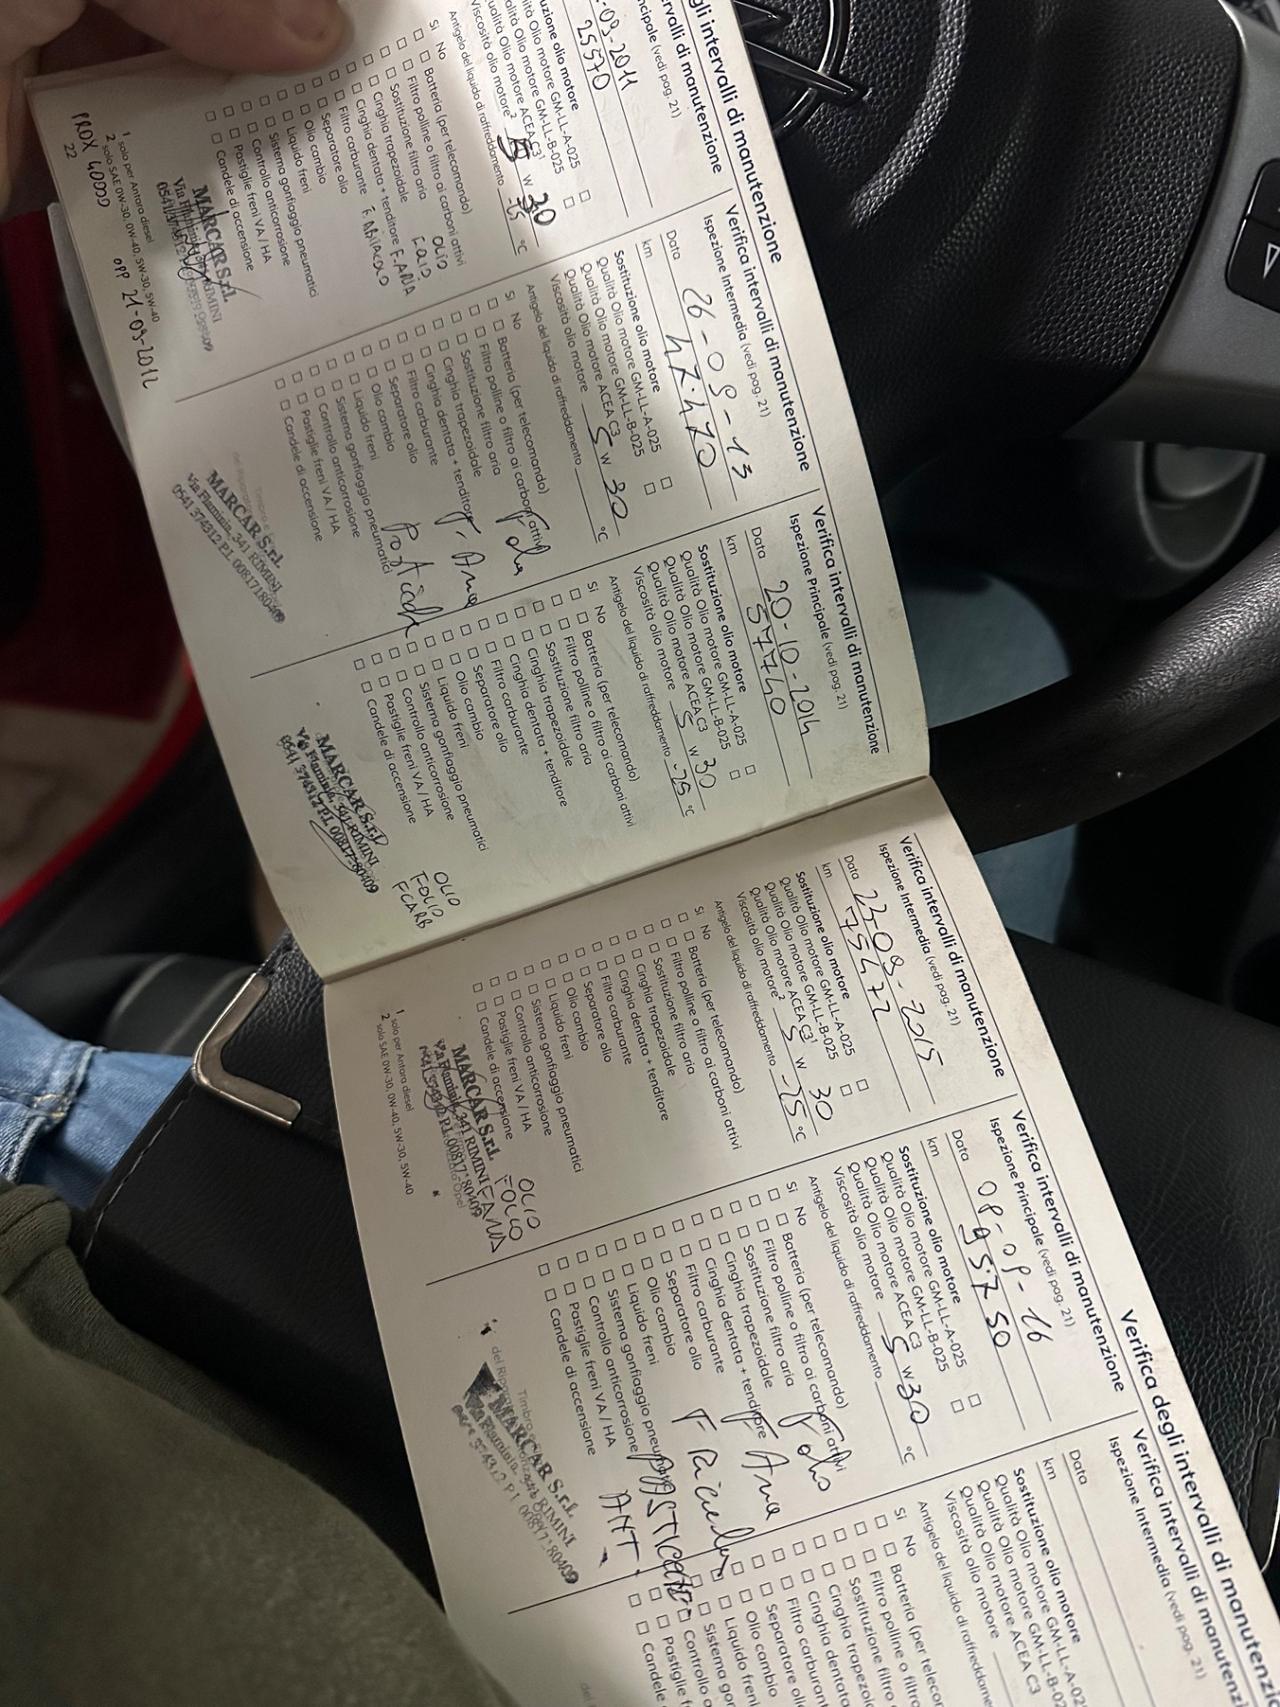 gli intervalli di manutenzione
rvalli di manutenzione
ncipale (vedi pag. 21)
-09-2011
25570
uzione olio motore
lità Olio motore GM-LL-A-025
alità Olio motore GM-LL-B-025
ualità Olio motore ACEA C3¹
Viscosità olio motore² 5 W 30
Antigelo del liquido di raffreddamento -25 °C
Si No
Batteria (per telecomando)
Filtro polline o filtro ai carboni attivi
Sostituzione filtro aria
Cinghia trapezoidale
Cinghia dentata + tenditore
Filtro carburante
Separatore olio
Olio cambio
Liquido freni
Sistema gonfiaggio pneumatici
Controllo anticorrosione
Pastiglie freni VA / HA
Candele di accensione
OLIO
F. OLIO
F. ARIA
F. ABITACOLO
MARCAR S.r.l.
1 solo per Antara diesel
2 solo SAE 0W-30, 0W-40, 5W-30, 5W-40
22
PROX 40000
OPP 21-09-2012
Verifica intervalli di manutenzione
Ispezione Intermedia (vedi pag. 21)
Data 26-09-13
km 47.470
Sostituzione olio motore
Qualità Olio motore GM-LL-A-025
Qualità Olio motore GM-LL-B-025
Qualità Olio motore ACEA C3
Viscosità olio motore 5 W 30
Antigelo del liquido di raffreddamento °C
Si No
Batteria (per telecomando)
Filtro polline o filtro ai carboni attivi
Sostituzione filtro aria
Cinghia trapezoidale
Cinghia dentata + tenditore
Filtro carburante
Separatore olio
Olio cambio
Liquido freni
Sistema gonfiaggio pneumatici
Controllo anticorrosione
Pastiglie freni VA / HA
Candele di accensione
MARCAR S.r.l.
Via Flaminia, 341 RIMINI
0541 374312 P.I. 00817180409
Verifica intervalli di manutenzione
Ispezione Principale (vedi pag. 21)
Data 20-10-2014
km 57740
Sostituzione olio motore
Qualità Olio motore GM-LL-A-025
Qualità Olio motore GM-LL-B-025
Qualità Olio motore ACEA C3
Viscosità olio motore 5 W 30
Antigelo del liquido di raffreddamento -25 °C
Si No
Batteria (per telecomando)
Filtro polline o filtro ai carboni attivi
Sostituzione filtro aria
Cinghia trapezoidale
Cinghia dentata + tenditore
Filtro carburante
Separatore olio
Olio cambio
Liquido freni
Sistema gonfiaggio pneumatici
Controllo anticorrosione
Pastiglie freni VA / HA
Candele di accensione
OLIO
F OLIO
F CARB
MARCAR S.r.l.
Via Flaminia, 341 RIMINI
0541 374312 P.I. 00817180409
Verifica intervalli di manutenzione
Ispezione Intermedia (vedi pag. 21)
Data 23-09-2015
km 75472
Sostituzione olio motore
Qualità Olio motore GM-LL-A-025
Qualità Olio motore GM-LL-B-025
Qualità Olio motore ACEA C3¹
Viscosità olio motore² 5 W 30
Antigelo del liquido di raffreddamento -25 °C
Si No
Batteria (per telecomando)
Filtro polline o filtro ai carboni attivi
Sostituzione filtro aria
Cinghia trapezoidale
Cinghia dentata + tenditore
Filtro carburante
Separatore olio
Olio cambio
Liquido freni
Sistema gonfiaggio pneumatici
Controllo anticorrosione
Pastiglie freni VA / HA
Candele di accensione
OLIO
F OLIO
F ARIA
MARCAR S.r.l.
Via Flaminia, 341 RIMINI
1 solo per Antara diesel
2 solo SAE 0W-30, 0W-40, 5W-30, 5W-40
Verifica degli intervalli di manutenz
Verifica intervalli di manutenzione
Ispezione Principale (vedi pag. 21)
Data 08-09-16
km 95750
Sostituzione olio motore
Qualità Olio motore GM-LL-A-025
Qualità Olio motore GM-LL-B-025
Qualità Olio motore ACEA C3
Viscosità olio motore 5 W 30
Antigelo del liquido di raffreddamento °C
Si No
Batteria (per telecomando)
Filtro polline o filtro ai carboni attivi
Sostituzione filtro aria
Cinghia trapezoidale
Cinghia dentata + tenditore
Filtro carburante
Separatore olio
Olio cambio
Liquido freni
Sistema gonfiaggio pneumatici
Controllo anticorrosione
Pastiglie freni VA / HA
Candele di accensione
ANT
MARCAR S.r.l.
Verifica intervalli di manutenz
Ispezione Intermedia (vedi pag. 21)
Data
km
Sostituzione olio motore
Qualità Olio motore GM-LL-A-02
Qualità Olio motore GM-LL-B-02
Qualità Olio motore ACEA C3
Viscosità olio motore
Antigelo del liquido di raffreddament
Si No
Batteria (per telecom
Filtro polline o filtro
Sostituzione filtro
Cinghia trapezoi
Cinghia dentat
Filtro carburan
Separatore oli
Olio cambio
Liquido freni
Sistema gon
Controllo a
Pastiglie f
Candele